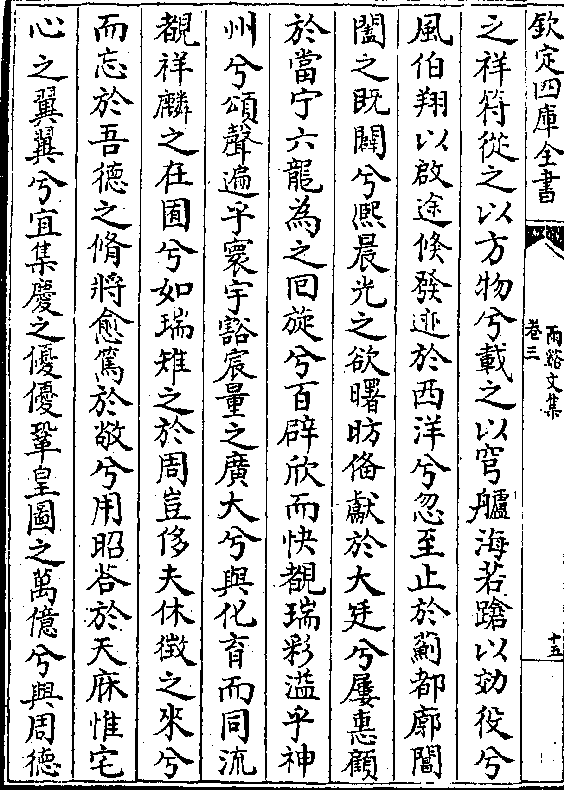 欽定四庫全書
兩谿文集
卷三
十五
之祥符從之以方物兮載之以穹艫海若蹌以効役兮
風伯翔以啟途倐發迹於西洋兮忽至止於薊都廓閶
闔之既闢兮熈晨光之欲曙昉俻獻於大廷兮屢惠顧
於當宁六龍為之回旋兮百辟欣而快覩瑞彩溢乎神
州兮頌聲遍乎寰宇豁宸量之廣大兮與化育而同流
覩祥麟之在囿兮如瑞雉之於周豈侈夫休徴之來兮
而忘於吾德之脩將愈篤於敬兮用昭荅於天庥惟宅
心之翼翼兮宜集慶之優優鞏皇圖之萬億兮與周德